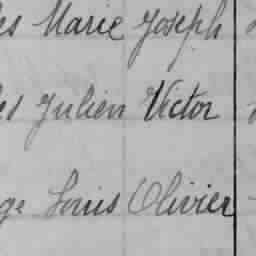 es Marie Joseph
es Julien Victor
ge Louis Olivier